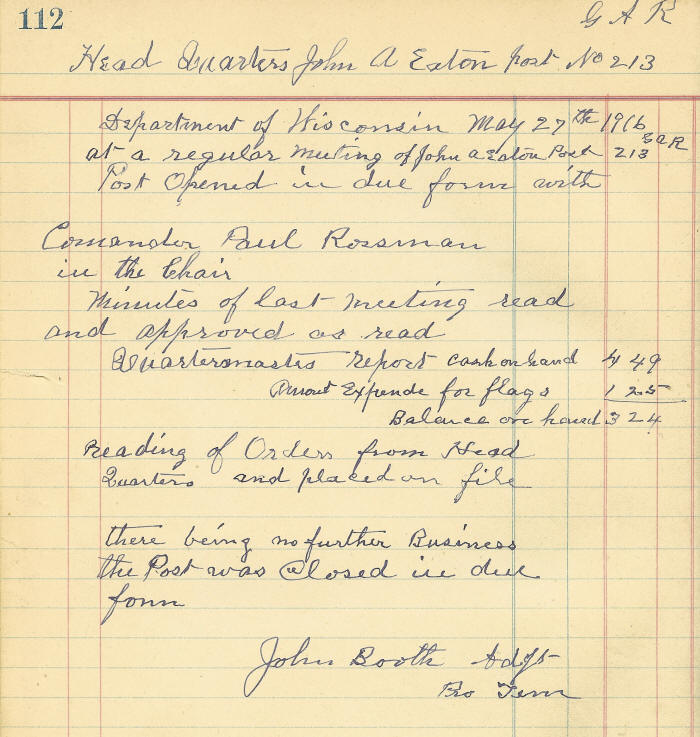 112
G A R
Head Quarters John A Eaton post No 213
Department of Wisconsin May 27th 1916
at a regular Meeting of John a Eaton Post 213 GAR
Post Opened in due form with
Comander Paul Rossman
in the Chair
Minutes of last meeting read
and approved as read
Quartermasters report cash on hand 4 49
Amout Expende for flags 1 25
Balance on hand 3 24
Reading of Orders from Head
Quarters and placed on file
there being no further Business
the Post was Closed in due
form
John Booth Adjt
Pro Tem